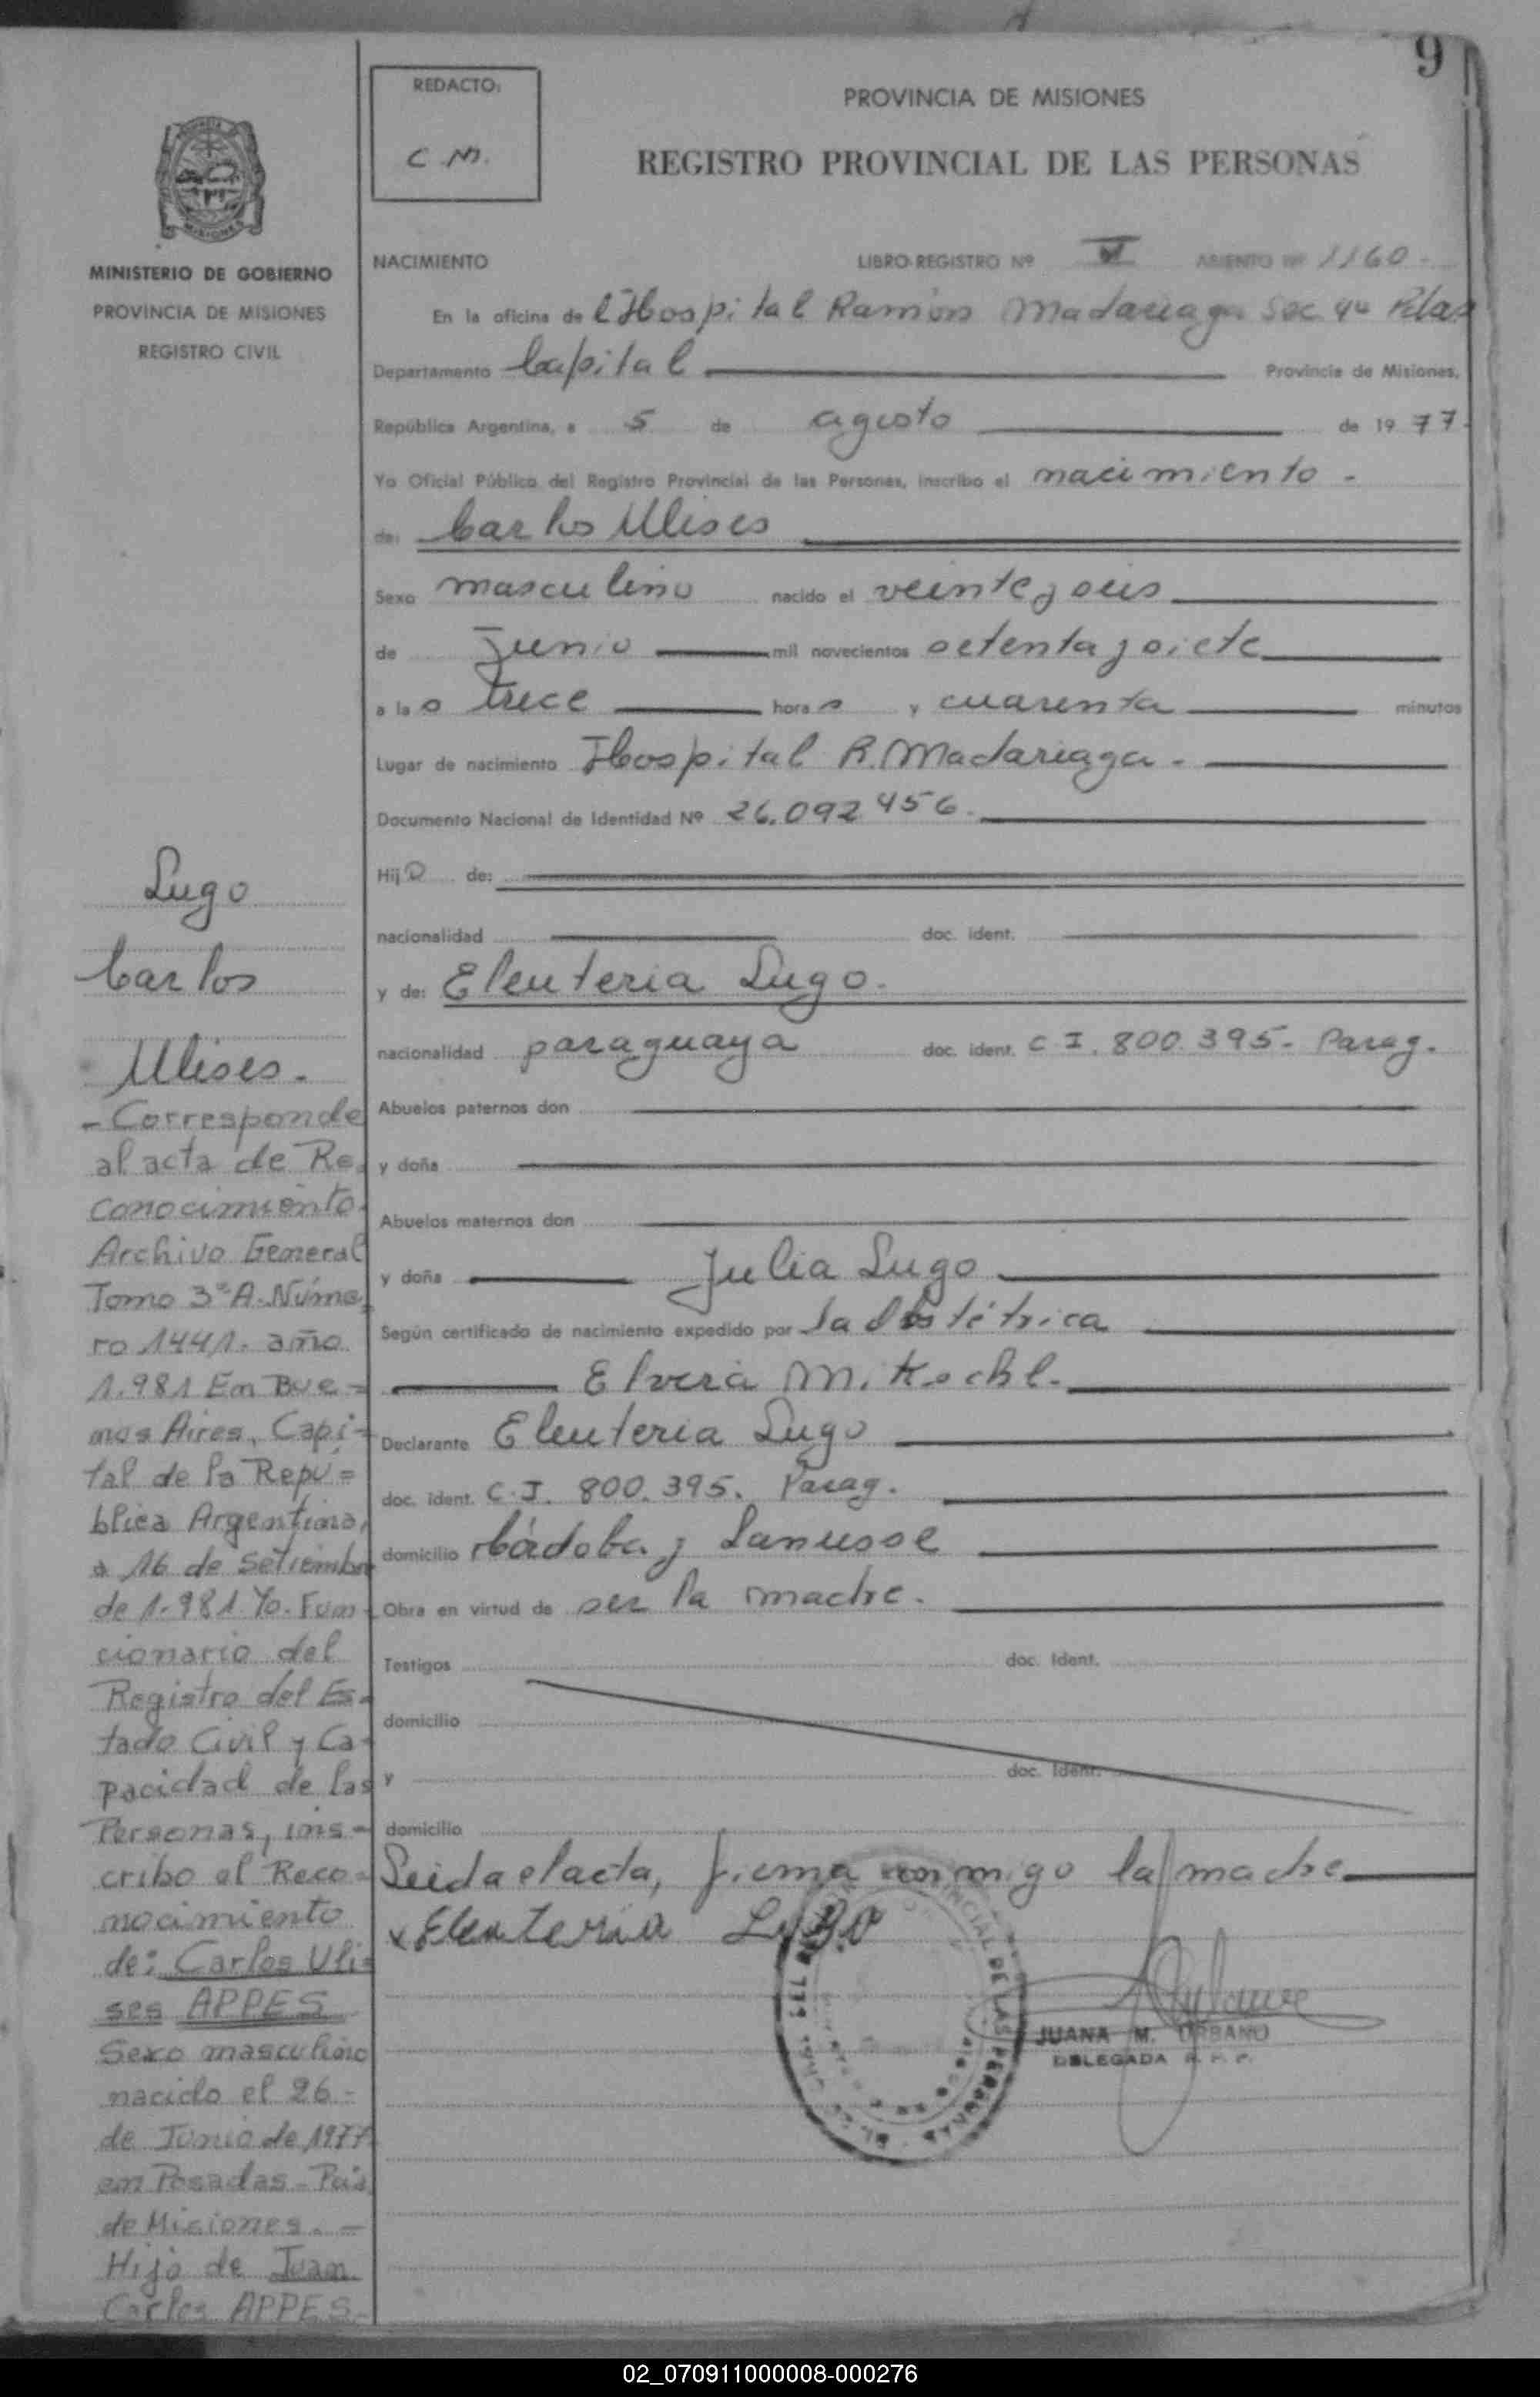 9
REDACTO:
C M.
PROVINCIA DE MISIONES
REGISTRO PROVINCIAL DE LAS PERSONAS
MINISTERIO DE GOBIERNO
PROVINCIA DE MISIONES
REGISTRO CIVIL
NACIMIENTO LIBRO-REGISTRO Nº VI ASIENTO Nº 1160 -
En la oficina de l'Hospital Ramón Madariaga Sec 4ª
Departamento Capital Provincia de Misiones,
República Argentina, a 5 de agosto de 1977.
Yo Oficial Público del Registro Provincial de las Personas, inscribo el nacimiento -
de: Carlos Ulises
Sexo masculino nacido el veinte y seis
de Junio mil novecientos setenta y siete
a la s trece hora s y cuarenta minutos
Lugar de nacimiento Hospital R. Madariaga -
Documento Nacional de Identidad Nº 26.092.456.
Hij o de:
nacionalidad doc. ident.
y de: Eleuteria Lugo.
nacionalidad paraguaya doc. ident. C I. 800.395- Parag.
Abuelos paternos don
y doña
Abuelos maternos don
y doña Julia Lugo
Según certificado de nacimiento expedido por la Obstétrica
Elvira M. Kochl.
Declarante Eleuteria Lugo
doc. ident. C.I. 800.395. Parag.
domicilio Córdoba y Lanusse
Obra en virtud de ser la madre.
Testigos doc. Ident.
domicilio
y doc. Ident.
domicilio
Leida el acta, firma conmigo la madre
x Eleuteria Lugo
JUANA M. URBANO
DELEGADA R. P. P.
Lugo
Carlos
Ulises.
- Corresponde
al acta de Re-
conocimiento.
Archivo General
Tomo 3º A. Núme-
ro 1441. año
1.981 En Bue=
nos Aires, Capi=
tal de la Repú=
blica Argentina,
a 16 de Setiembre
de 1.981. Yo. Fun-
cionario del
Registro del Es-
tado Civil y Ca-
pacidad de las
Personas, ins-
cribo el Reco=
nocimiento
de: Carlos Uli=
ses APPES
Sexo masculino
nacido el 26 -
de Junio de 1977
en Posadas - Pcia.
de Misiones. -
Hijo de Juan
Carlos APPES -
02_070911000008-000276